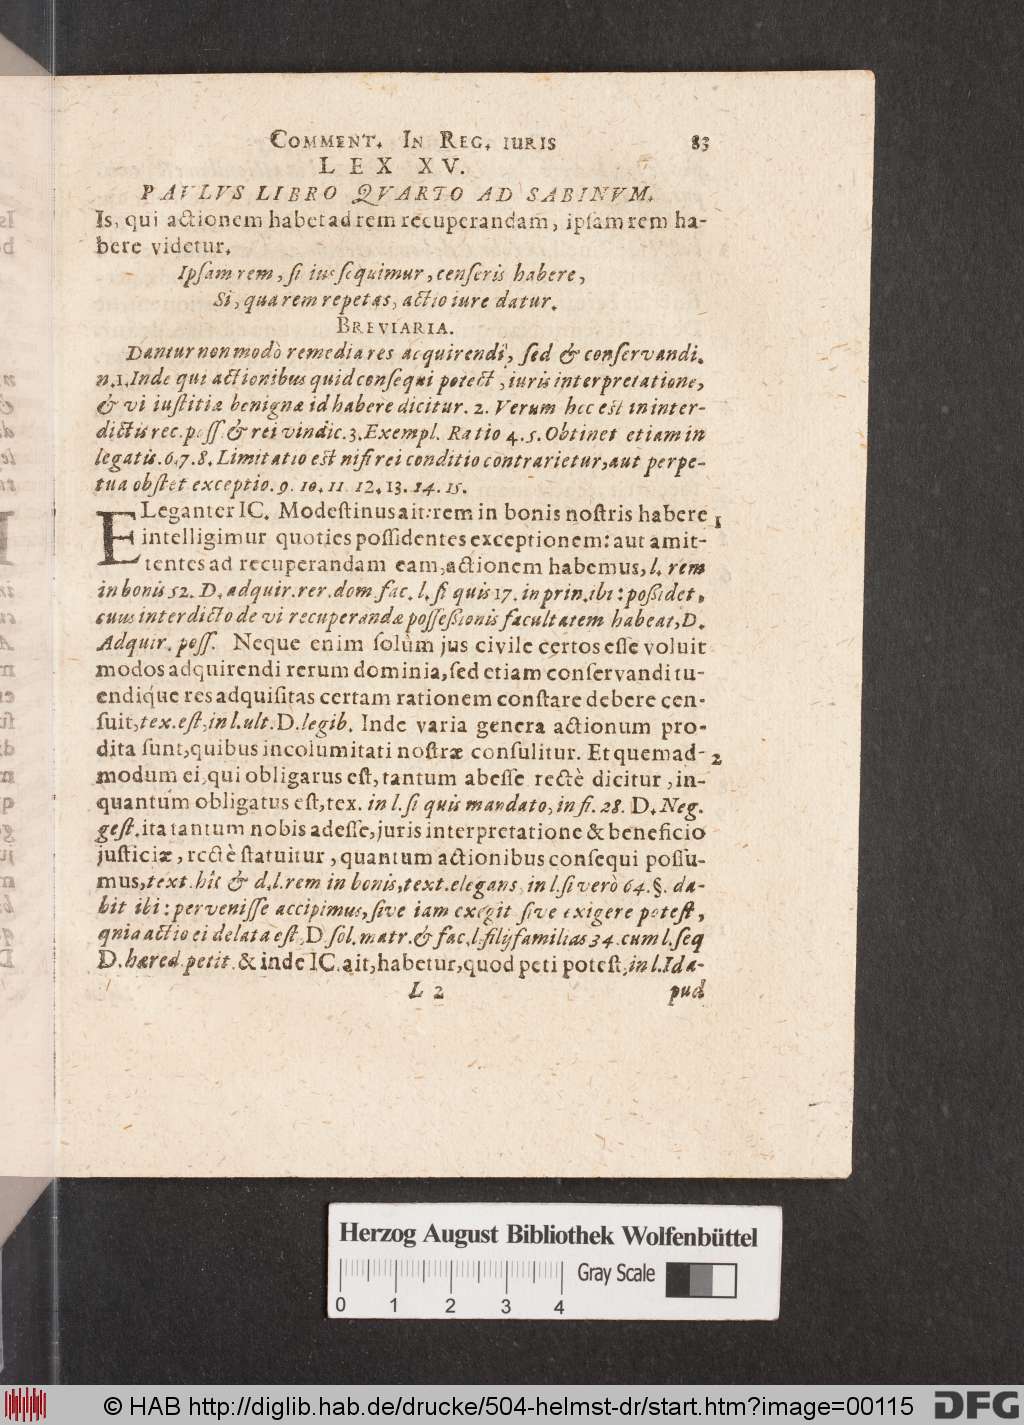 COMMENT. IN REG. IURIS 83
LEX XV.
PAULVS LIBRO QVARTO AD SABINVM.
Is, qui actionem habet ad rem recuperandam, ipſam rem ha-
bere videtur.
Ipſam rem, ſi ius ſequimur, cenſeris habere,
Si, qua rem repetas, actio iure datur.
BREVIARIA.
Dantur non modò remedia res acquirendi, ſed & conſervandi.
n.1. Inde qui actionibus quid conſequi poteſt, iuris interpretatione,
& vi iuſtitiæ benignæ id habere dicitur. 2. Verum hoc eſt in inter-
dictis rec. poſſ. & rei vindic. 3. Exempl. Ratio 4. 5. Obtinet etiam in
legatis. 6. 7. 8. Limitatio eſt niſi rei conditio contrarietur, aut perpe-
tua obſtet exceptio. 9. 10. 11. 12. 13. 14. 15.
ELeganter IC. Modeſtinus ait: rem in bonis noſtris habere 1
intelligimur quoties poſſidentes exceptionem: aut amit-
tentes ad recuperandam eam, actionem habemus, l. rem
in bonis 52. D. adquir. rer. dom. fac. l. ſi quis 17. in prin. ibi: poſſidet,
cuius interdicto de vi recuperandæ poſſeſſionis facultatem habeat, D.
Adquir. poſſ. Neque enim ſolùm jus civile certos eſſe voluit
modos adquirendi rerum dominia, ſed etiam conſervandi tu-
endique res adquiſitas certam rationem conſtare debere cen-
ſuit, tex. eſt, in l. ult. D. legib. Inde varia genera actionum pro-
dita ſunt, quibus incolumitati noſtræ conſulitur. Et quemad- 2
modum ei, qui obligatus eſt, tantum abeſſe rectè dicitur, in-
quantum obligatus eſt, tex. in l. ſi quis mandato, in fi. 28. D. Neg.
geſt. ita tantum nobis adeſſe, juris interpretatione & beneficio
juſticiæ, rectè ſtatuitur, quantum actionibus conſequi poſſu-
mus, text. hîc & d. l. rem in bonis, text. elegans, in l. ſi verò 64. §. da-
bit ibi: perveniſſe accipimus, ſive iam exegit ſive exigere poteſt,
qnia actio ei delata eſt, D. ſol. matr. & fac. l. filijfamilias 34. cum l. ſeq
D. hæred. petit. & inde IC. ait, habetur, quod peti poteſt, in l. Id a-
L 2 pud
Herzog August Bibliothek Wolfenbüttel
Gray Scale
0 1 2 3 4
© HAB http://diglib.hab.de/drucke/504-helmst-dr/start.htm?image=00115
DFG